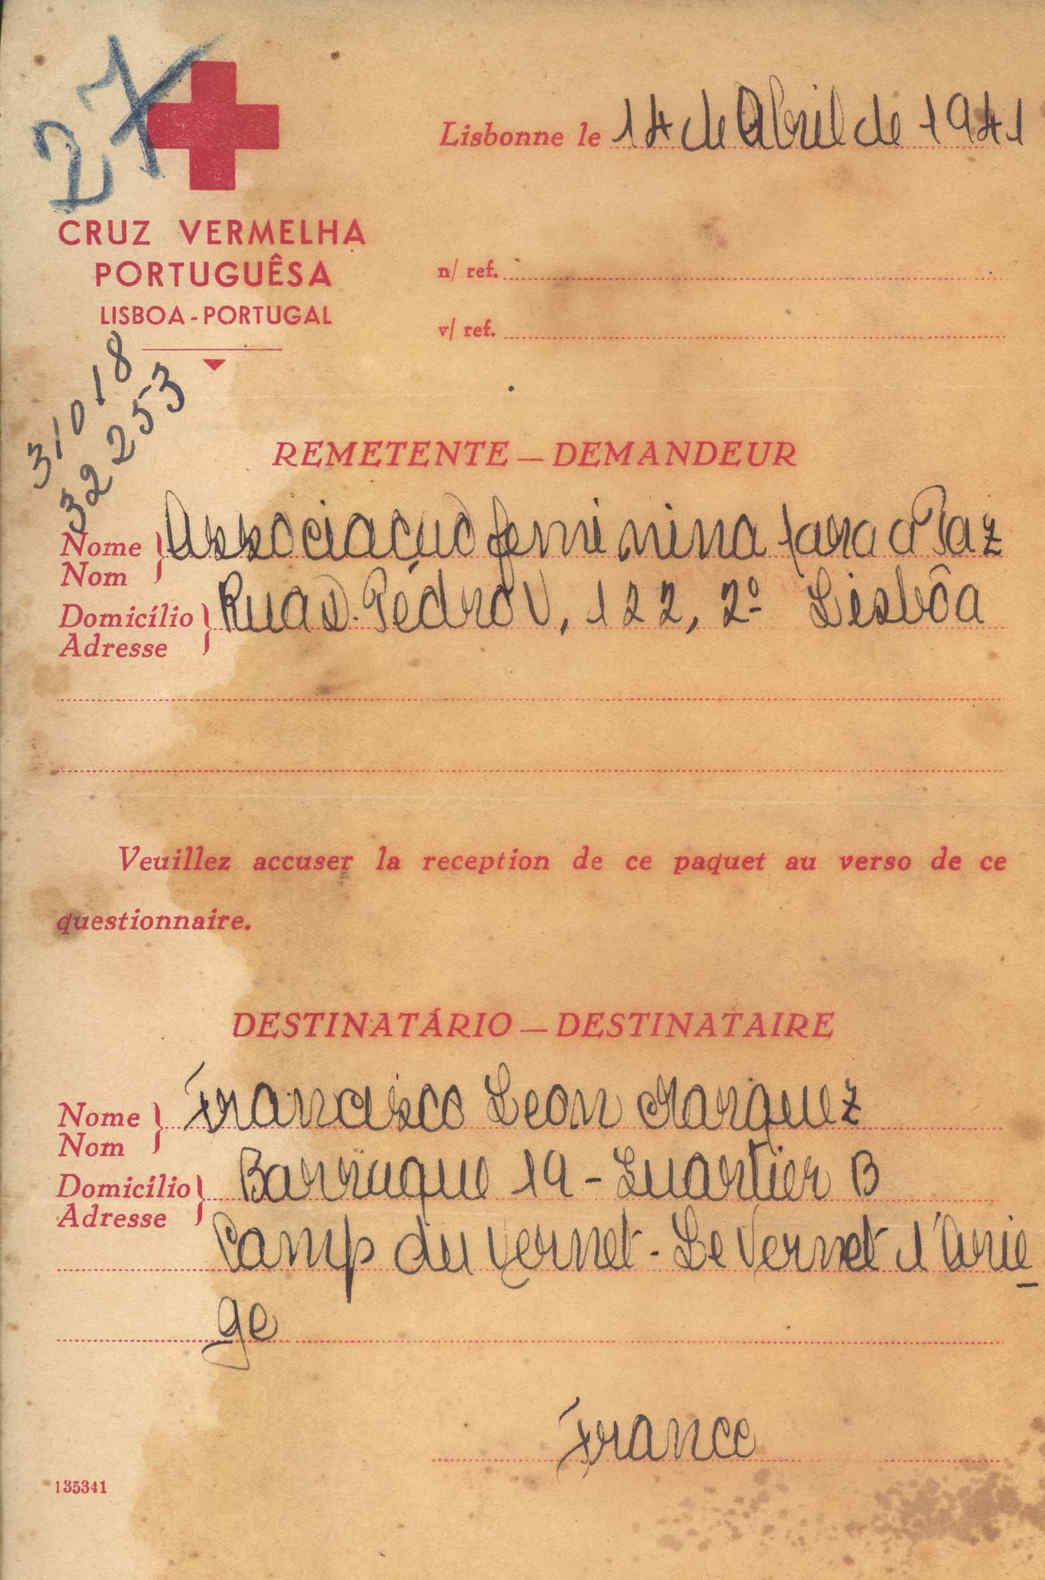 27
CRUZ VERMELHA
PORTUGUÊSA
LISBOA - PORTUGAL
Lisbonne le 14 de Abril de 1941
n/ ref.
v/ ref.
31018
32253
REMETENTE — DEMANDEUR
Nome Associacão feminina para a Paz
Nom
Domicílio Rua D. Pédro V, 122, 2º Lisbôa
Adresse
Veuillez accuser la reception de ce paquet au verso de ce
questionnaire.
DESTINATÁRIO — DESTINATAIRE
Nome Francisco Leon Marquez
Nom
Domicílio Barraque 19 - Quartier B
Adresse
Camp du Vernet - Le Vernet d'Arié-
ge
France
135341